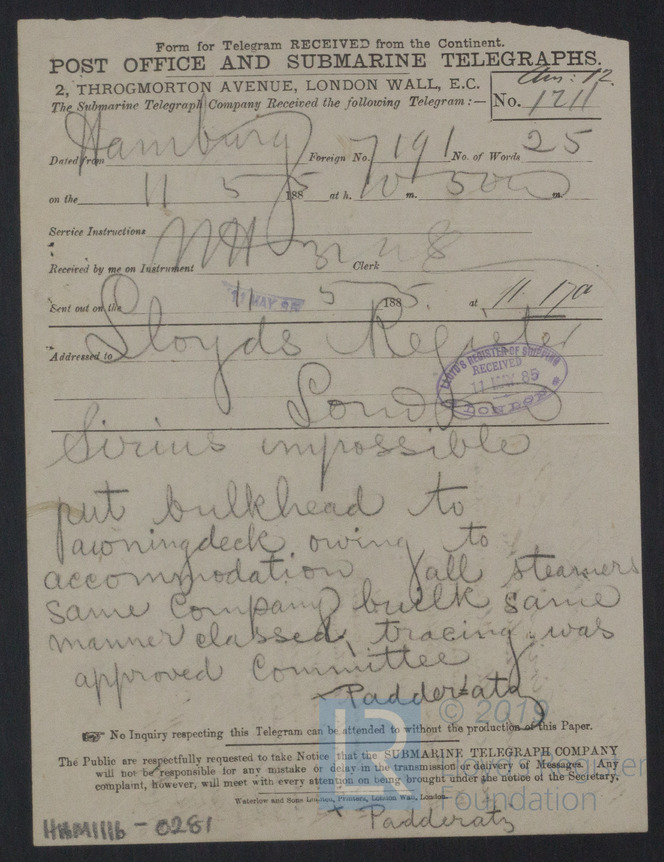 Form for Telegram RECEIVED from the Continent.
POST OFFICE AND SUBMARINE TELEGRAPHS.
2, THROGMORTON AVENUE, LONDON WALL, E.C.
Ans: 12.
The Submarine Telegraph Company Received the following Telegram:—
No. 1211
Dated from Hamburg Foreign No. 7191 No. of Words 25
on the 11 5 1885 at h. 10 m. 50 m.
Service Instructions
Received by me on Instrument Clerk
Sent out on the 11 5 1885. at 11.17a
11 MAY 85
Addressed to Lloyds Register
LLOYD'S REGISTER OF SHIPPING
RECEIVED
11 MAY 85
LONDON
London
Sirius impossible
put bulkhead to
awningdeck owing to
accommodation all steamers
same Company built same
manner classed, tracing was
approved Committee
x Padderatz
No Inquiry respecting this Telegram can be attended to without the production of this Paper.
The Public are respectfully requested to take Notice that the SUBMARINE TELEGRAPH COMPANY
will not be responsible for any mistake or delay in the transmission or delivery of Messages. Any
complaint, however, will meet with every attention on being brought under the notice of the Secretary.
Waterlow and Sons Limited, Printers, London Wall, London.
x Padderatz
HNM1116 - 0281
© 2019
Foundation